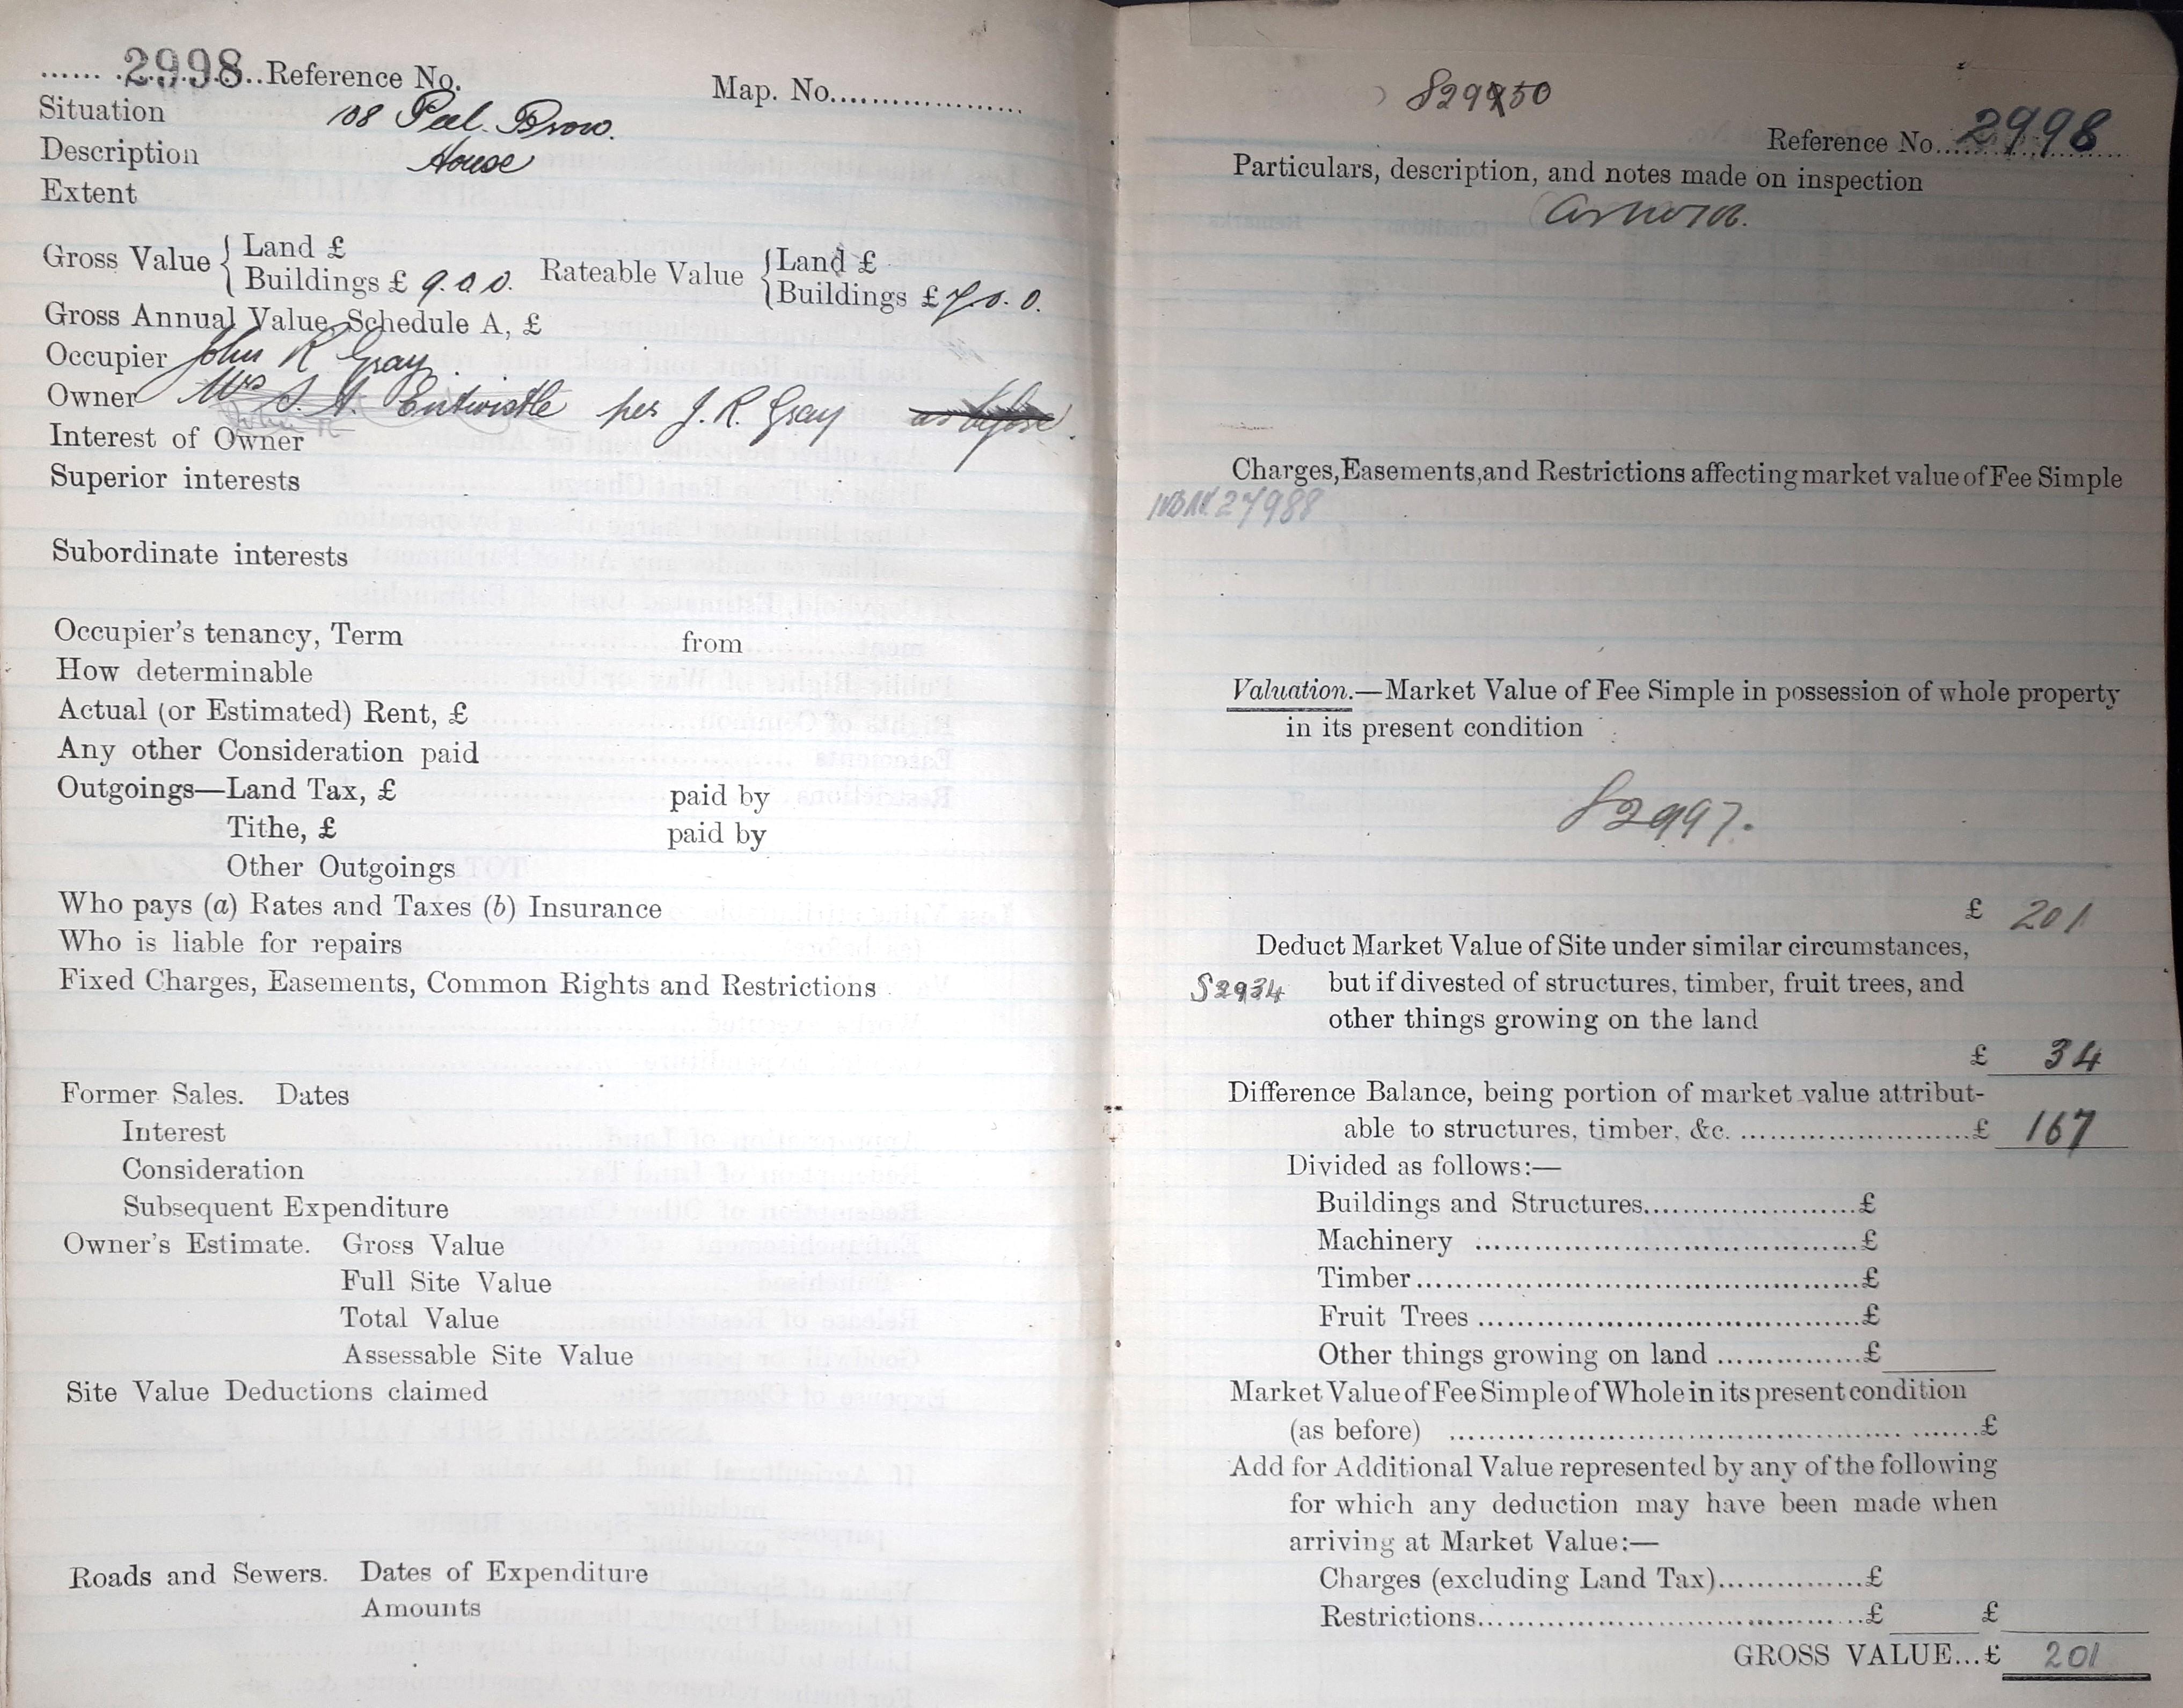 ...... .2998..Reference No.
Map. No....................
Situation 108 Peel Brow.
Description House
Extent
Gross Value { Land £
Buildings £ 9.0.0. Rateable Value { Land £
Buildings £ 7.0.0.
Gross Annual Value, Schedule A, £
Occupier John R Gray.
Owner Mrs S. A. Entwistle per J. R. Gray as before.
John R
Interest of Owner
Superior interests
Subordinate interests
Occupier's tenancy, Term from
How determinable
Actual (or Estimated) Rent, £
Any other Consideration paid
Outgoings—Land Tax, £ paid by
Tithe, £ paid by
Other Outgoings
Who pays (a) Rates and Taxes (b) Insurance
Who is liable for repairs
Fixed Charges, Easements, Common Rights and Restrictions
Former Sales. Dates
Interest
Consideration
Subsequent Expenditure
Owner's Estimate. Gross Value
Full Site Value
Total Value
Assessable Site Value
Site Value Deductions claimed
Roads and Sewers. Dates of Expenditure
Amounts
Reference No. 2998
Particulars, description, and notes made on inspection
Charges, Easements, and Restrictions affecting market value of Fee Simple
27988
Valuation.—Market Value of Fee Simple in possession of whole property
in its present condition
S2997.
£ 201
Deduct Market Value of Site under similar circumstances,
S2934 but if divested of structures, timber, fruit trees, and
other things growing on the land
£ 34
Difference Balance, being portion of market value attribut-
able to structures, timber, &c. ........................£ 167
Divided as follows:—
Buildings and Structures......................£
Machinery .......................................£
Timber.............................................£
Fruit Trees .......................................£
Other things growing on land ...............£
Market Value of Fee Simple of Whole in its present condition
(as before) ......................................................£
Add for Additional Value represented by any of the following
for which any deduction may have been made when
arriving at Market Value:—
Charges (excluding Land Tax)...............£
Restrictions.........................................£ £
GROSS VALUE...£ 201